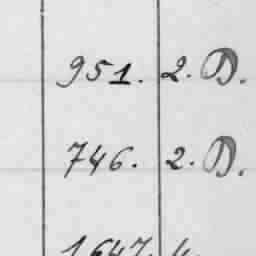 951. 2. D.
746. 2. D.
1647. 4.